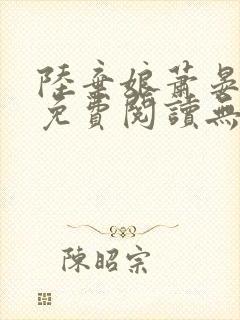 陸棄娘蕭晏
免費閱讀無
陳昭宗